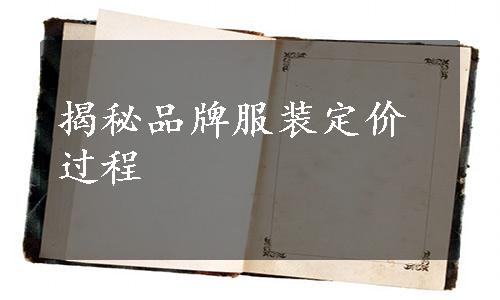 揭秘品牌服装定价
过程